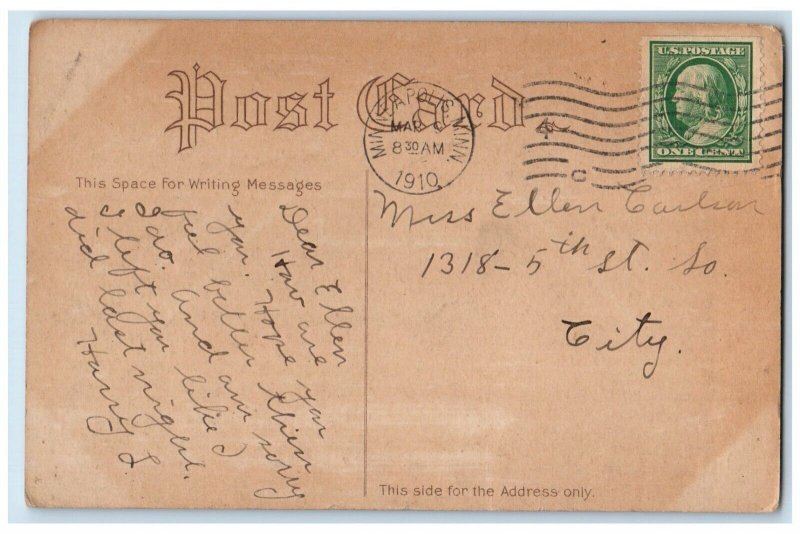 Post Card.
This Space For Writing Messages
MINNEAPOLIS, MINN
MAR
8 30 AM
1910
U.S. POSTAGE
ONE CENT
Miss Ellen Carlson
1318 - 5th St. So.
City.
Dear Ellen
How are you
Hope this
you. feel better and am sorry
I do. And like I
I left you
did last night.
Harry L
This side for the Address only.